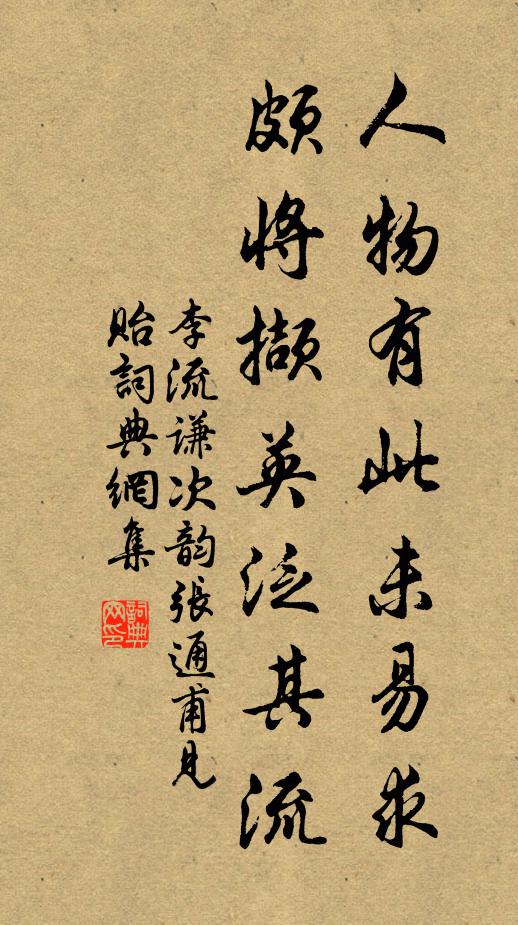 人物有此未易求
頗將擷英泛其流
李流谦次韵張通甫見
貽詞典網集
詞典
网印